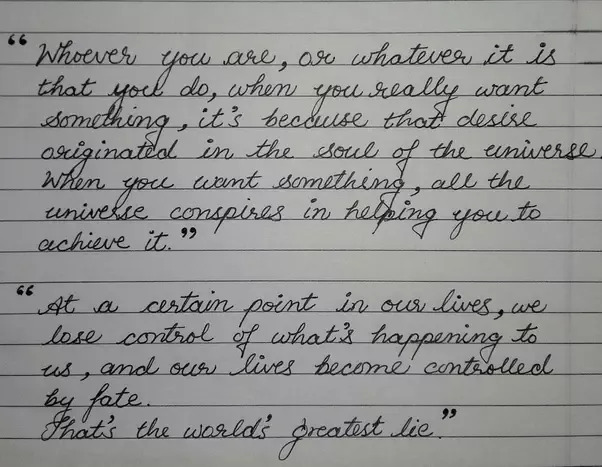 “Whoever you are, or whatever it is
that you do, when you really want
something, it's because that desire
originated in the soul of the universe.
When you want something, all the
universe conspires in helping you to
achieve it.”
“At a certain point in our lives, we
lose control of what's happening to
us, and our lives become controlled
by fate.
That's the world's greatest lie.”